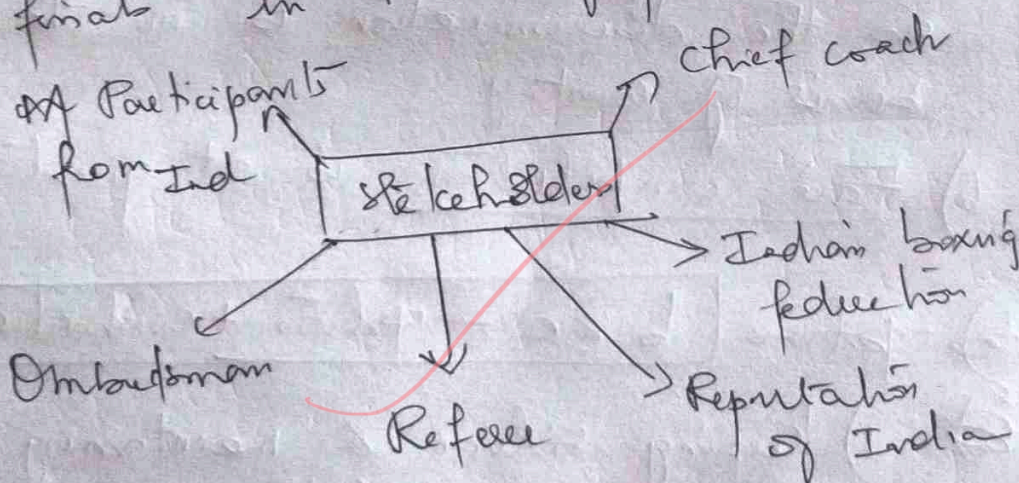 final in
Chief coach
Participants
from Ind
Stakeholders
Indian boxing
federation
Ombudsman
Referee
Reputation
of India